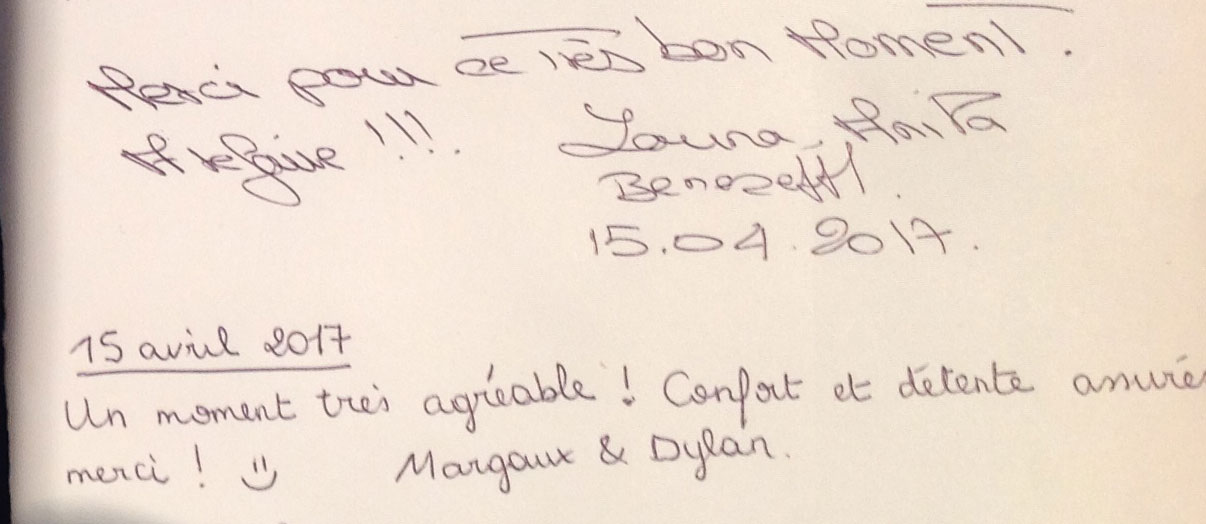 Merci pour ce très bon Moment.
A refaire !!!
Laura Anita
15.04.2017.
15 avril 2017
Un moment très agréable ! Confort et détente assuré
merci ! Margaux & Dylan.